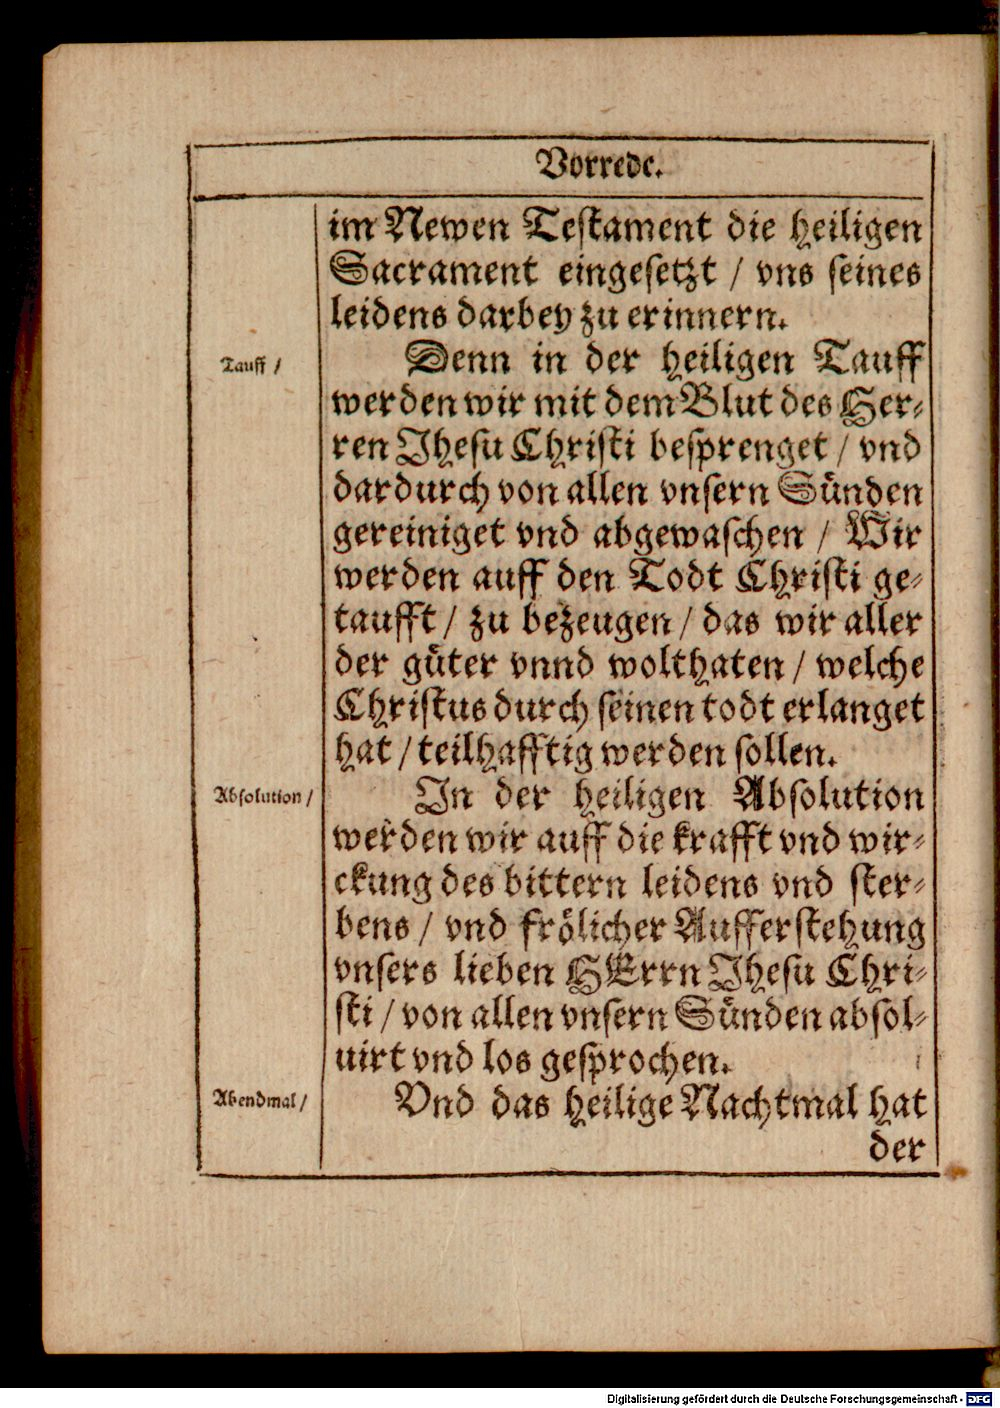 Vorrede.
im Newen Testament die heiligen
Sacrament eingesetzt / vns seines
leidens darbey zu erinnern.
Tauff /
Denn in der heiligen Tauff
werden wir mit dem Blut des Her-
ren Jhesu Christi besprenget / vnd
dardurch von allen vnsern Sünden
gereiniget vnd abgewaschen / Wir
werden auff den Todt Christi ge-
taufft / zu bezeugen / das wir aller
der güter vnnd wolthaten / welche
Christus durch seinen todt erlanget
hat / teilhafftig werden sollen.
Absolution /
In der heiligen Absolution
werden wir auff die krafft vnd wir-
ckung des bittern leidens vnd ster-
bens / vnd frölicher Aufferstehung
vnsers lieben HErrn Jhesu Chri-
sti / von allen vnsern Sünden absol-
uirt vnd los gesprochen.
Abendmal /
Vnd das heilige Nachtmal hat
der
Digitalisierung gefördert durch die Deutsche Forschungsgemeinschaft - DFG